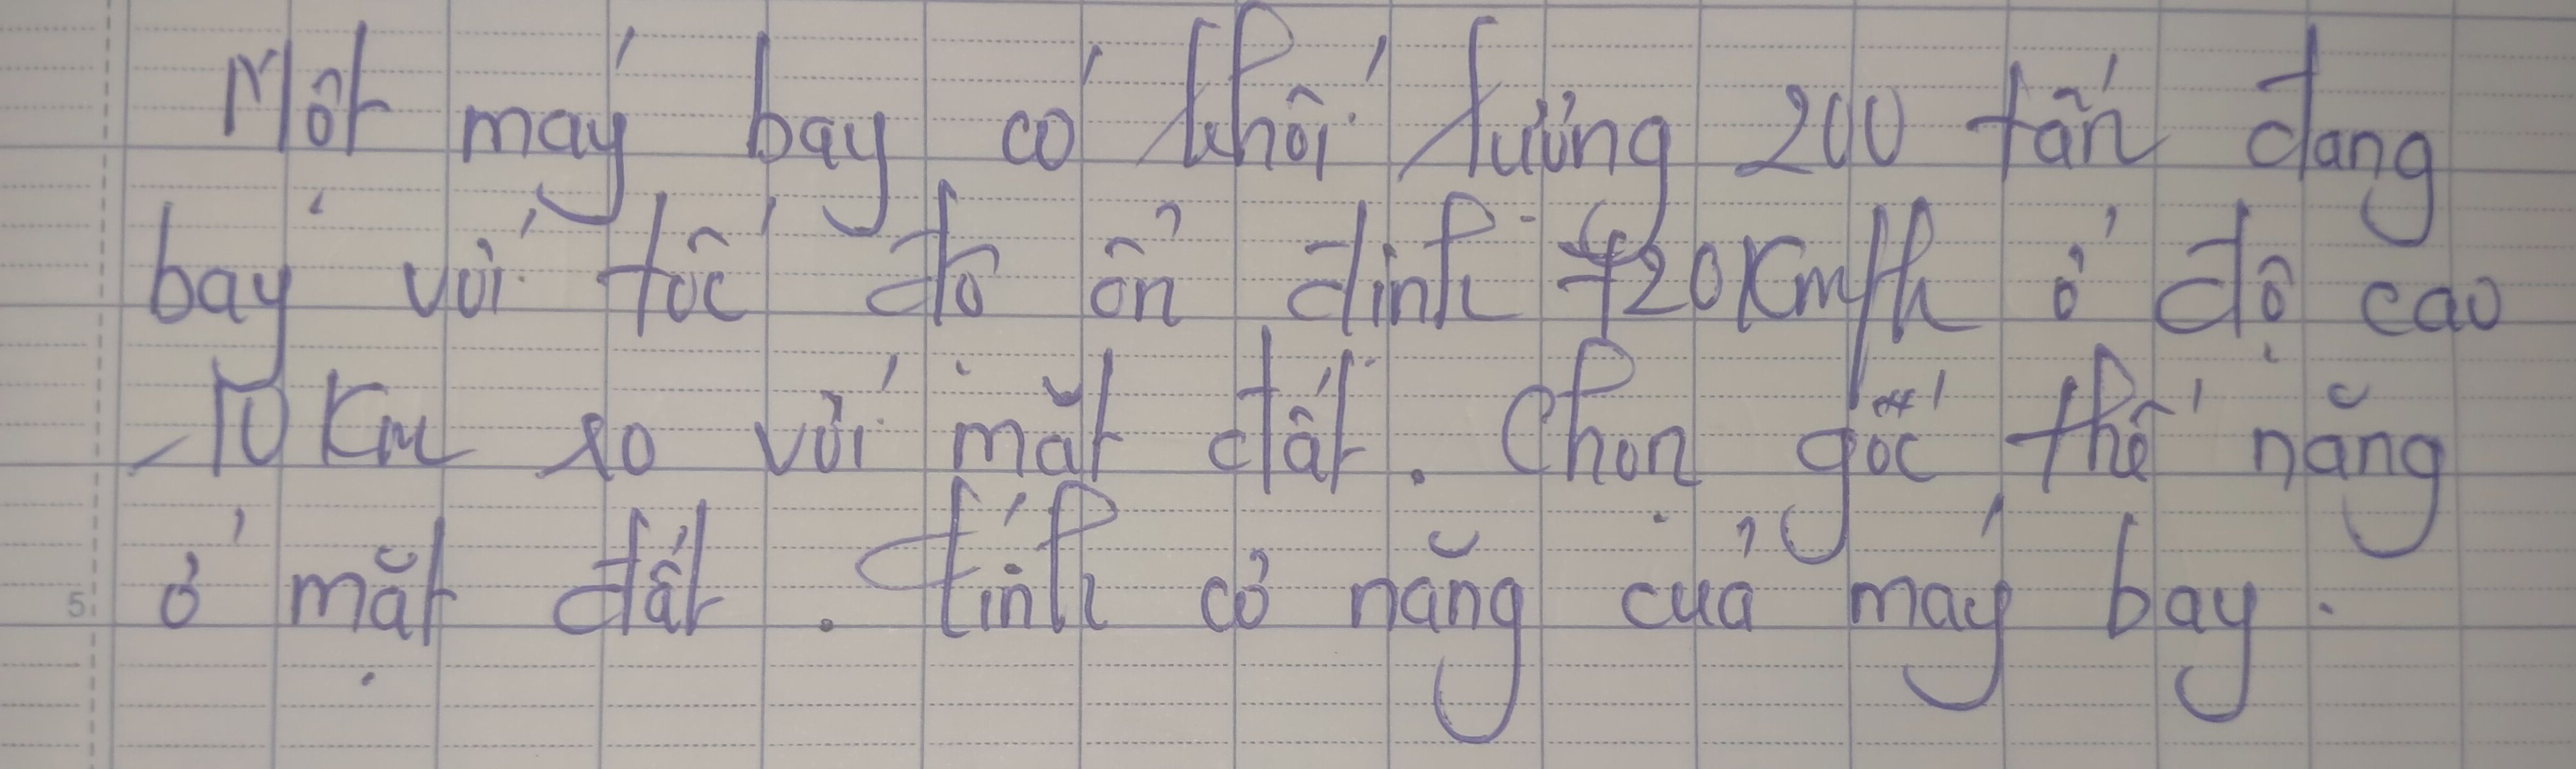 Một máy bay có khối lượng 200 tấn đang
bay với tốc độ ổn định 720Km/h ở độ cao
10 Km so với mặt đất. Chọn gốc thế năng
ở mặt đất. tính cơ năng của máy bay.
5